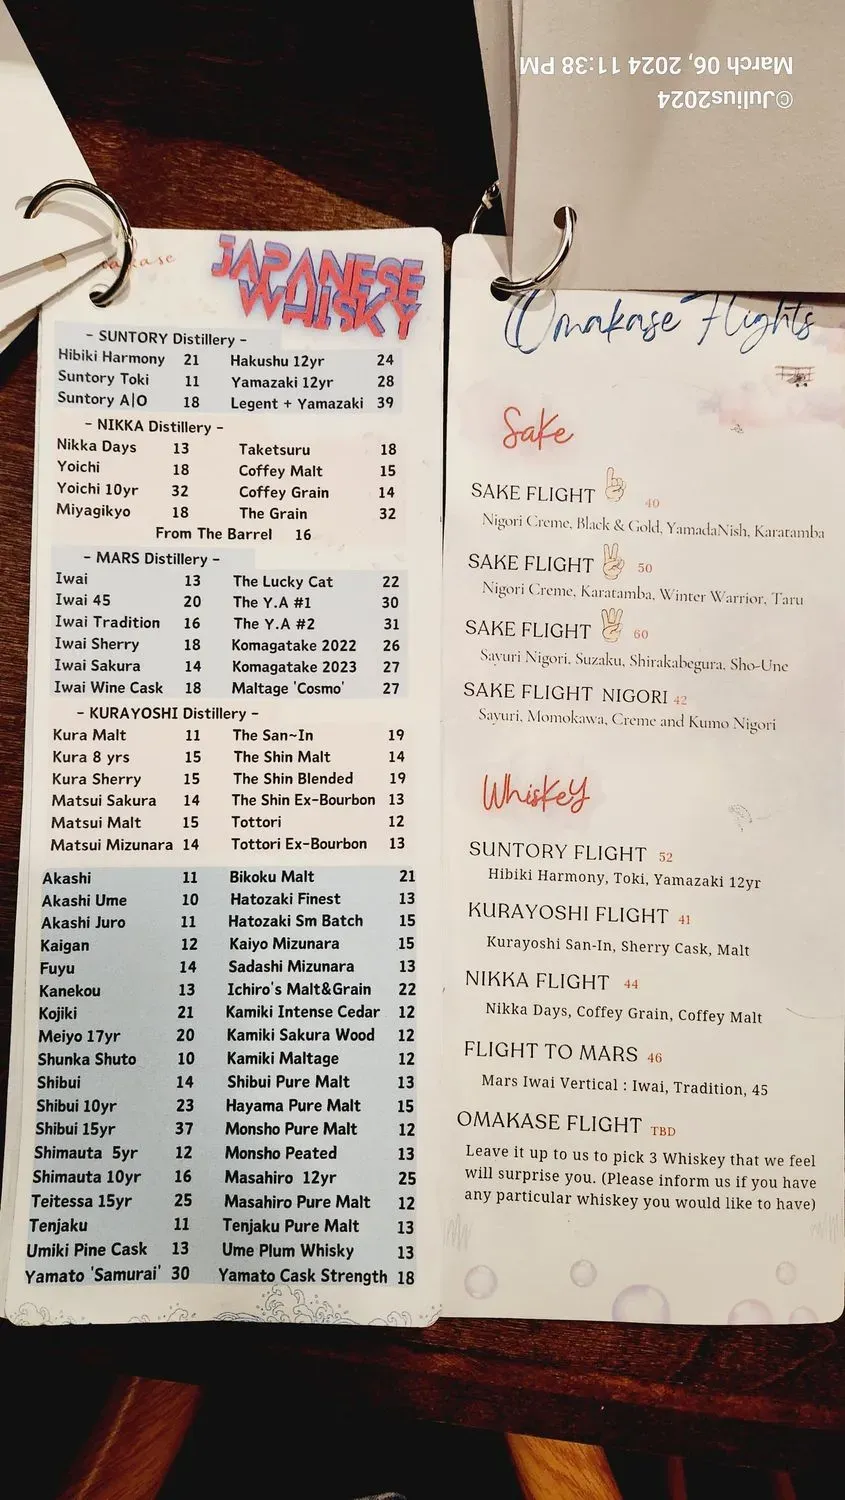 ©Julius2024
March 06, 2024 11:38 PM
JAPANESE
WHISKY
- SUNTORY Distillery -
Hibiki Harmony 21 Hakushu 12yr 24
Suntory Toki 11 Yamazaki 12yr 28
Suntory A|O 18 Legent + Yamazaki 39
- NIKKA Distillery -
Nikka Days 13 Taketsuru 18
Yoichi 18 Coffey Malt 15
Yoichi 10yr 32 Coffey Grain 14
Miyagikyo 18 The Grain 32
From The Barrel 16
- MARS Distillery -
Iwai 13 The Lucky Cat 22
Iwai 45 20 The Y.A #1 30
Iwai Tradition 16 The Y.A #2 31
Iwai Sherry 18 Komagatake 2022 26
Iwai Sakura 14 Komagatake 2023 27
Iwai Wine Cask 18 Maltage 'Cosmo' 27
- KURAYOSHI Distillery -
Kura Malt 11 The San~In 19
Kura 8 yrs 15 The Shin Malt 14
Kura Sherry 15 The Shin Blended 19
Matsui Sakura 14 The Shin Ex-Bourbon 13
Matsui Malt 15 Tottori 12
Matsui Mizunara 14 Tottori Ex-Bourbon 13
Akashi 11 Bikoku Malt 21
Akashi Ume 10 Hatozaki Finest 13
Akashi Juro 11 Hatozaki Sm Batch 15
Kaigan 12 Kaiyo Mizunara 15
Fuyu 14 Sadashi Mizunara 13
Kanekou 13 Ichiro's Malt&Grain 22
Kojiki 21 Kamiki Intense Cedar 12
Meiyo 17yr 20 Kamiki Sakura Wood 12
Shunka Shuto 10 Kamiki Maltage 12
Shibui 14 Shibui Pure Malt 13
Shibui 10yr 23 Hayama Pure Malt 15
Shibui 15yr 37 Monsho Pure Malt 12
Shimauta 5yr 12 Monsho Peated 13
Shimauta 10yr 16 Masahiro 12yr 25
Teitessa 15yr 25 Masahiro Pure Malt 12
Tenjaku 11 Tenjaku Pure Malt 13
Umiki Pine Cask 13 Ume Plum Whisky 13
Yamato 'Samurai' 30 Yamato Cask Strength 18
Omakase Flights
Sake
SAKE FLIGHT 40
Nigori Creme, Black & Gold, YamadaNish, Karatamba
SAKE FLIGHT 50
Nigori Creme, Karatamba, Winter Warrior, Taru
SAKE FLIGHT 60
Sayuri Nigori, Suzaku, Shirakabegura, Sho-Une
SAKE FLIGHT NIGORI 42
Sayuri, Momokawa, Creme and Kumo Nigori
Whiskey
SUNTORY FLIGHT 52
Hibiki Harmony, Toki, Yamazaki 12yr
KURAYOSHI FLIGHT 41
Kurayoshi San-In, Sherry Cask, Malt
NIKKA FLIGHT 44
Nikka Days, Coffey Grain, Coffey Malt
FLIGHT TO MARS 46
Mars Iwai Vertical : Iwai, Tradition, 45
OMAKASE FLIGHT TBD
Leave it up to us to pick 3 Whiskey that we feel
will surprise you. (Please inform us if you have
any particular whiskey you would like to have)